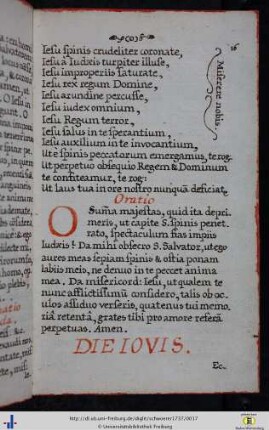 Iesu spinis crudeliter coronate,
Iesu à Iudæis turpiter illuse,
Iesu improperiis saturate,
Iesu rex regum Domine,
Iesu arundine percusse,
Iesu iudex omnium,
Iesu Regum terror,
Iesu salus in te sperantium,
Iesu auxilium in te invocantium,
Miserere nobis.
Ut è spinis peccatorum emergamus, te rog:
Ut perpetuo obsequio Regem & Dominum
te confiteamur, te rog:
Ut laus tua in ore nostro nunquã deficiat,
Oratio
O Sum̃a majestas, quid ita depri-
meris, ut capite S. spinis penet-
rato, spectaculum fias impiis
Iudæis? Da mihi obsecro S. Salvator, ut ego
aures meas sepiam spinis & ostia ponam
labiis meis, ne denuo in te peccet anima
mea. Da misericord: Iesu, ut qualem te
nunc afflictissimũ considero, talis ob oc-
ulos assiduo verseris, quatenus tui memo-
riã retentã, grates tibi pro amore referã
perpetuas. Amen.
DIE IOVIS.
Ec,
http://dl.ub.uni-freiburg.de/diglit/schwerer1737/0017
© Universitätsbibliothek Freiburg